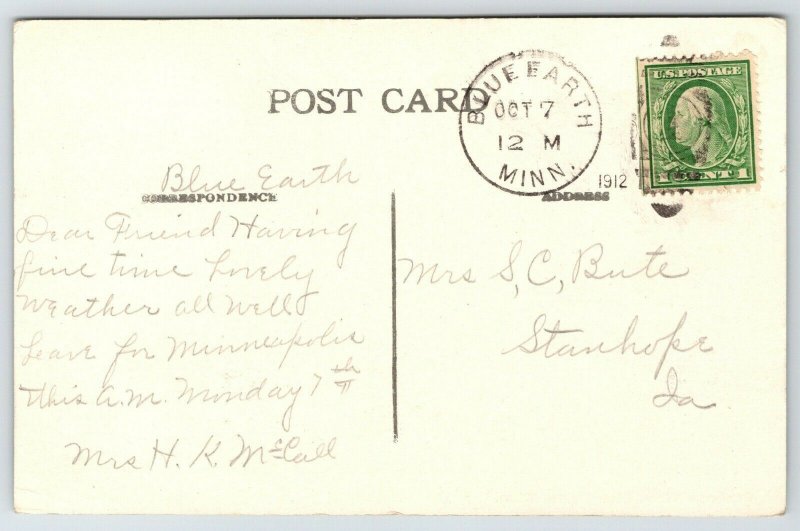 POST CARD
BLUE EARTH
OCT 7
12 M
MINN.
1912
U.S. POSTAGE
1 CENT 1
CORRESPONDENCE
ADDRESS
Blue Earth
Dear Friend Having
fine time Lovely
Weather all well
Leave for Minneapolis
this A.M. Monday 7th
Mrs H. K. McCall
Mrs S, C, Bute
Stanhope
Ia